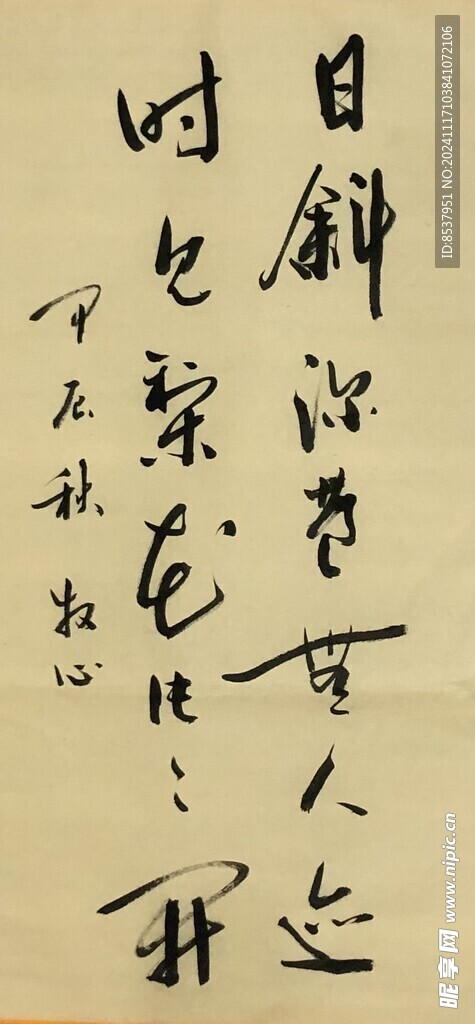 日斜深巷無人迹
时见梨花片〻开
甲辰秋 牧心
ID:8537951 NO:20241117103841072106
昵享网 www.nipic.cn